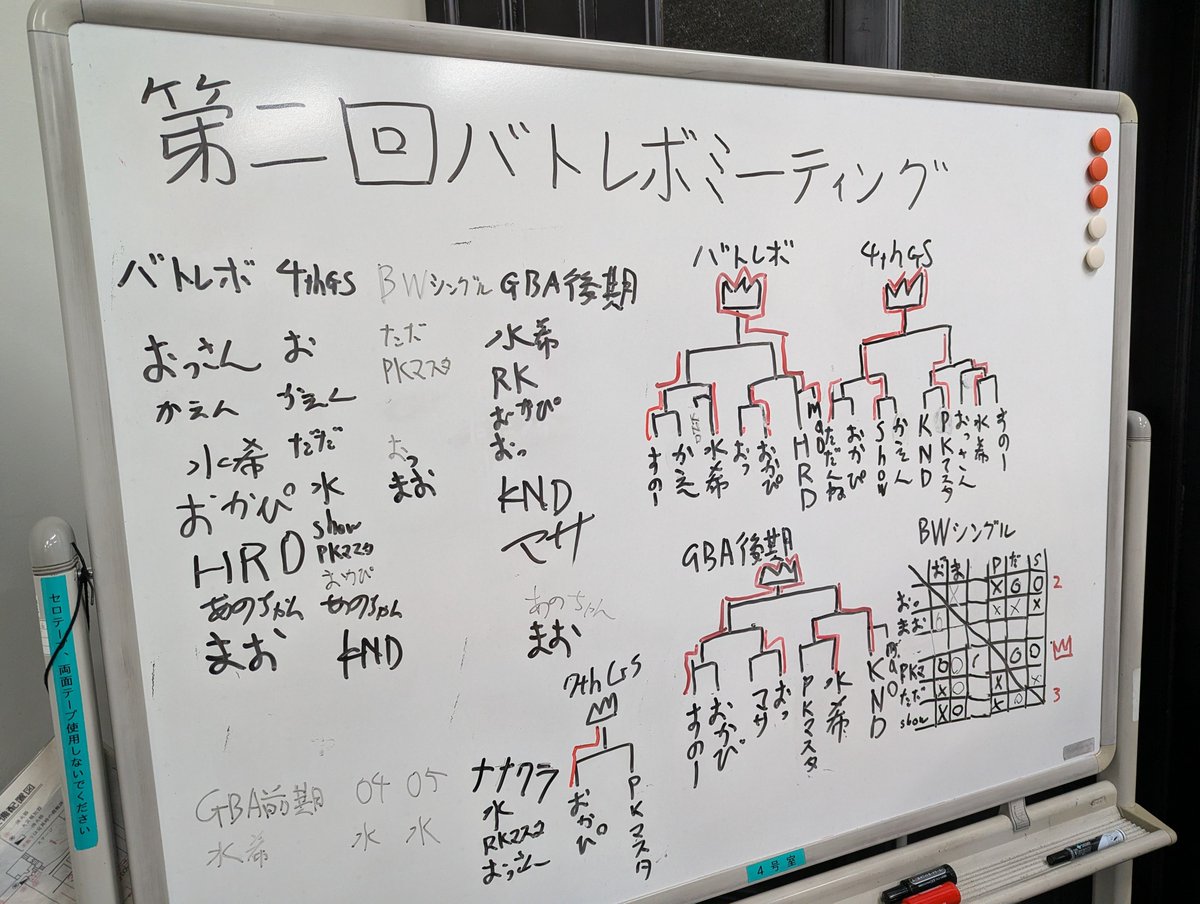 第二回バトレボミーティング
バトレボ 4thGS BWシングル GBA後期
おっさん お ただ 水希
かえん かえん PKマスタ RK
おかぴ
水希 ただ おっ おっ
おかぴ 水 まお KND
HRD show マサ
PKマスタ
おかぴ
あのちゃん あのちゃん あのちゃん
まお KND まお
GBA前期 04 05
水希 水 水
ナナクラ
水
PKマスタ
バトレボ
すのー かえん 水希 おっ おかぴ HRD Mao
4thGS
ただんね おかぴ Show かえん KND PKマスタ おっさん 水希 すのー
GBA後期
すのー おかぴ マサ おっ PKマスタ 水希 KND Mao
BWシングル
お ま P だ S
おっ X O O 2
まお X X X
PKマ O O O O
ただ X O X
show X O X O 3
7thGS
おかぴ PKマスタ
セロテープ、両面テープ使用しないでください
4号室
備配置図